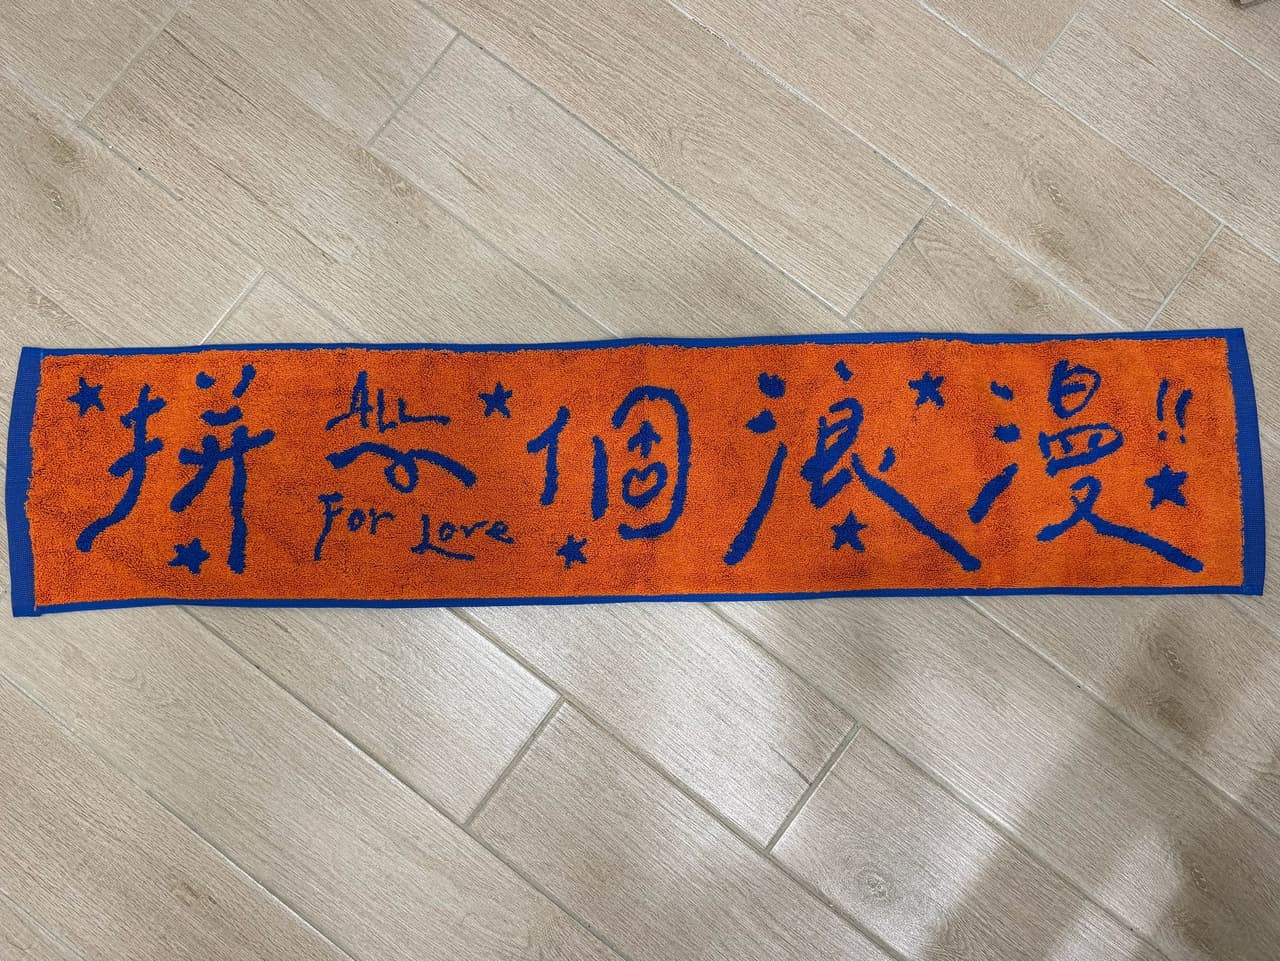 拼一個浪漫!!
ALL
For Love